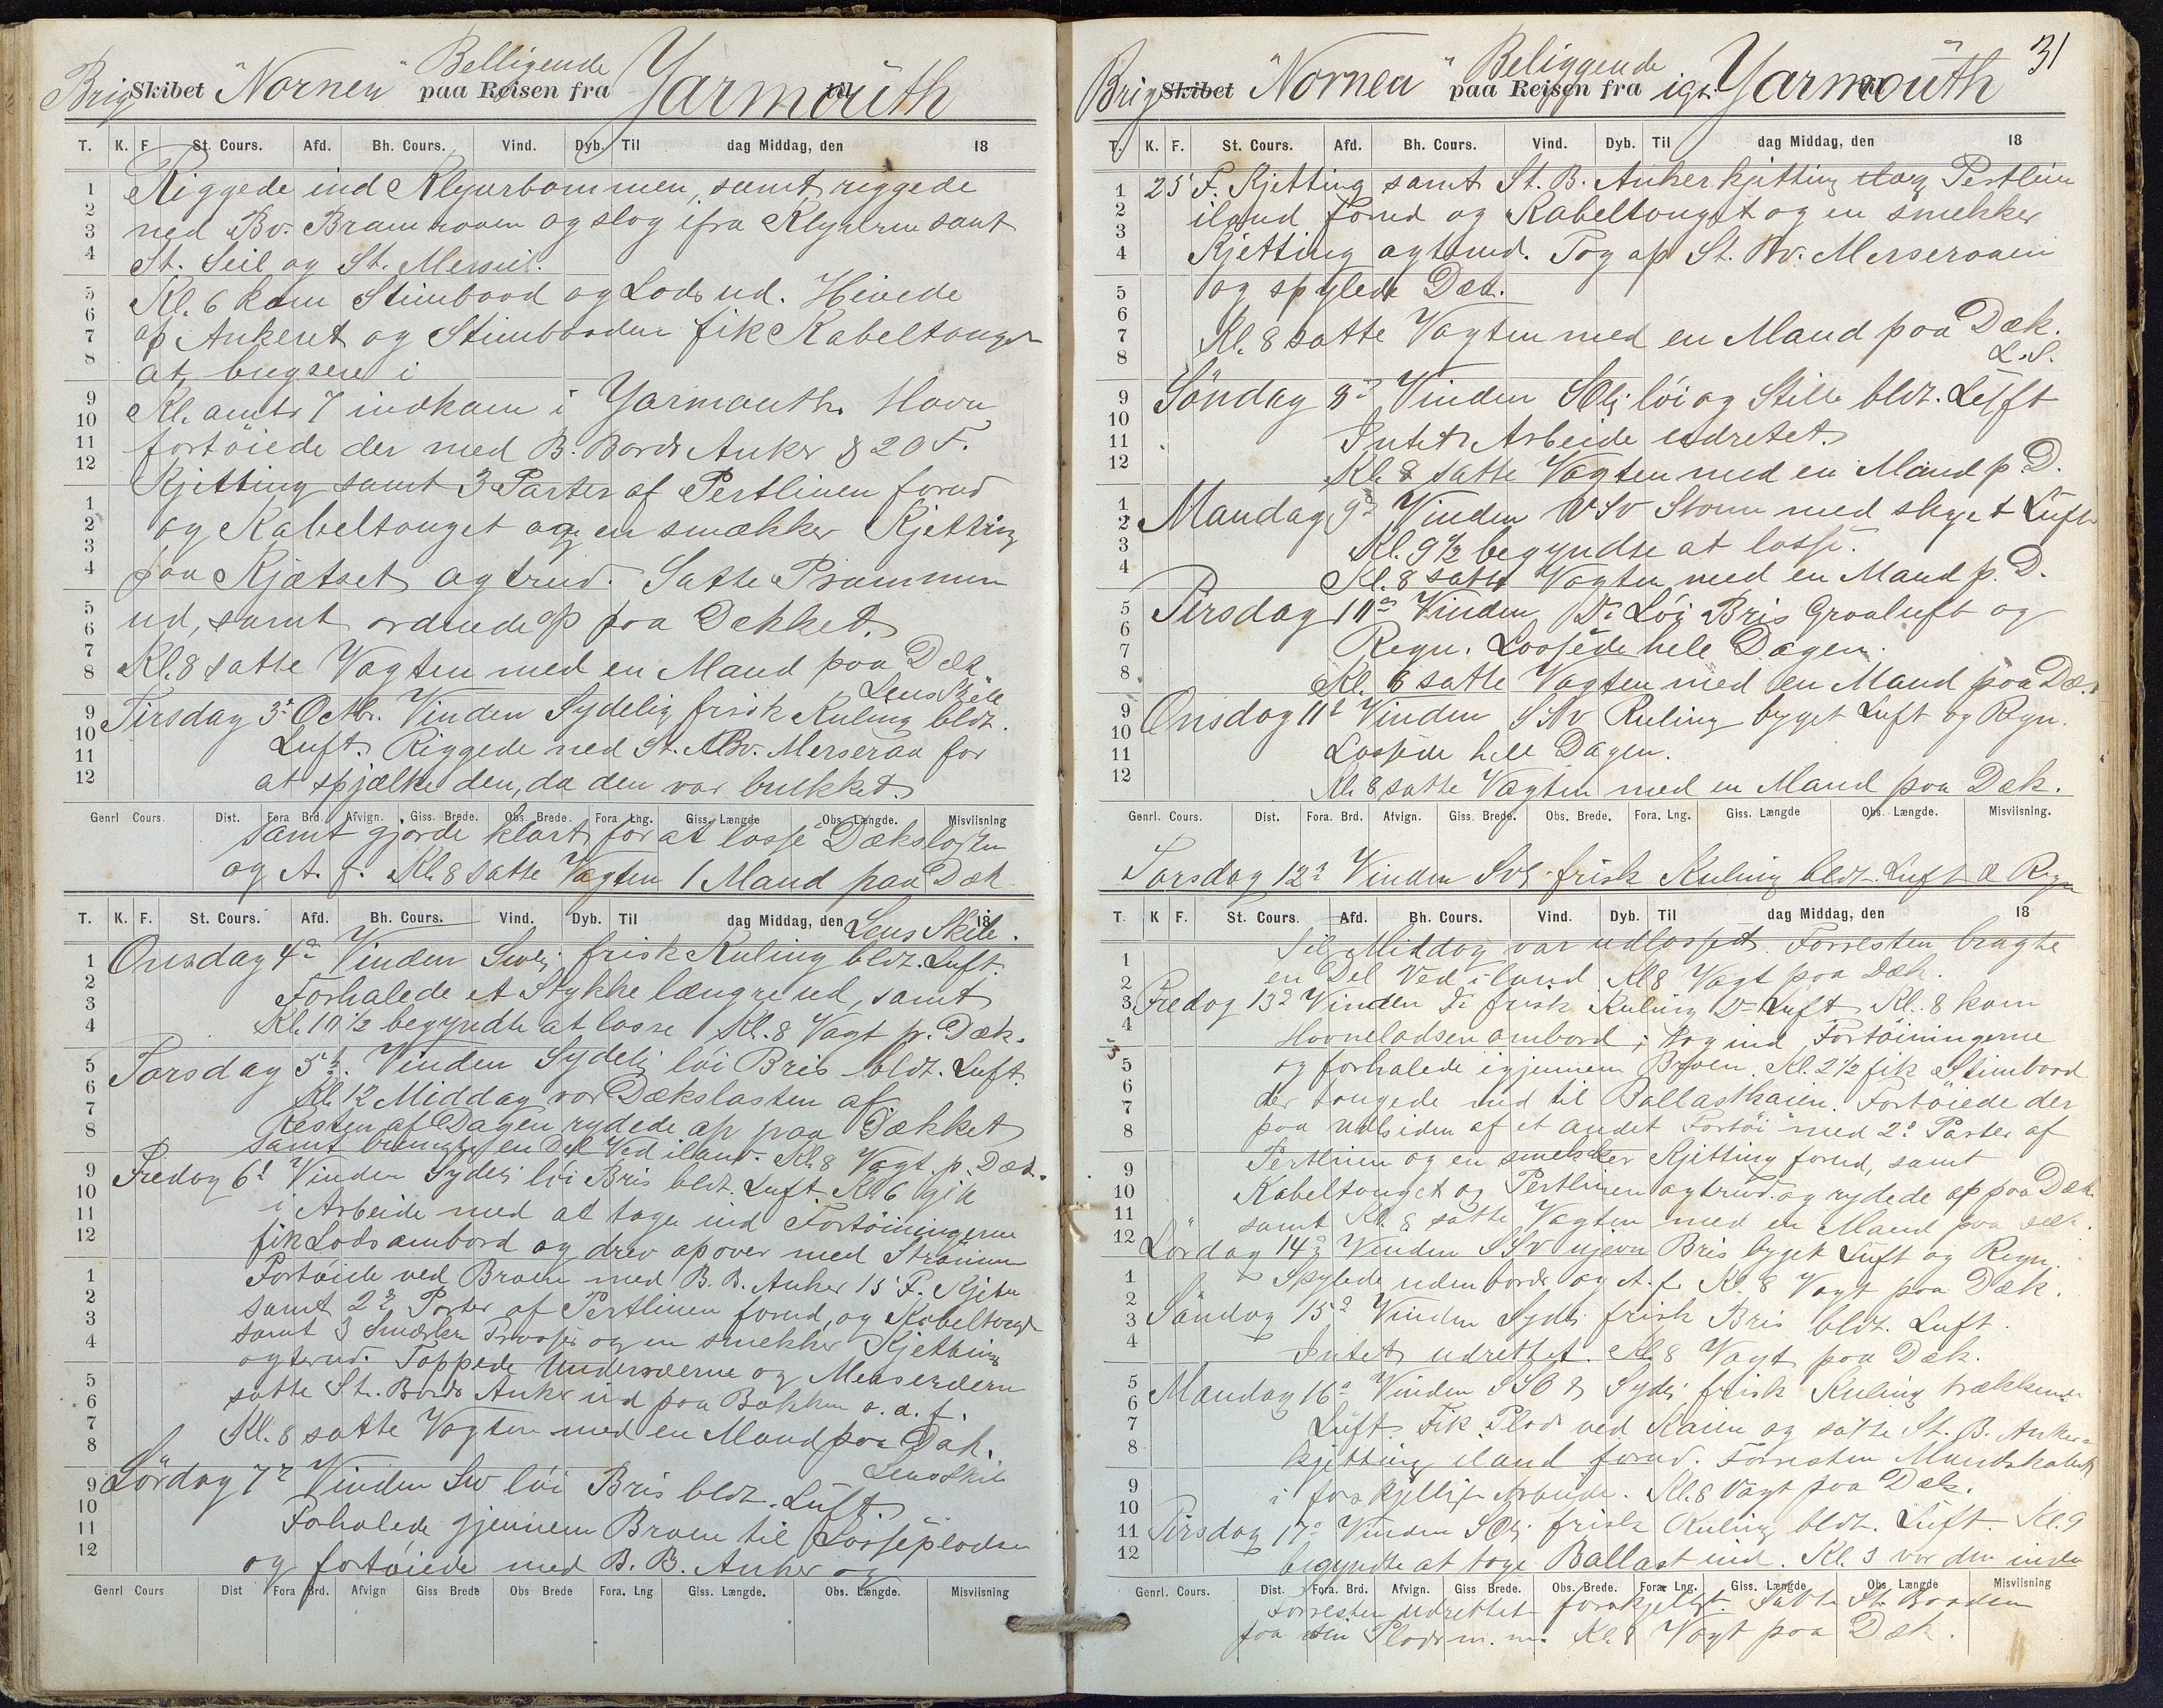 Brig Skibet "Nornen" Belligende paa Reisen fra Yarmouth til
T. K. F. St. Cours. Afd. Bh. Cours. Vind. Dyb. Til dag Middag, den 18
Riggede ind Klyverbommen, samt riggede
ned Bv. Bramraaen og slog ifra Klyveren samt
St. Seil og St. Mersseil.
Kl. 6 kom Stimbaad og Lods ud. Hivede
op Ankeret og Stimbaaden fik Kabeltouget
at bugsere i
Kl. omtr 7 indkom i Yarmouth Havn
fortøiede der med B. Bords Anker & 20 F.
Kjetting samt 3 Parter af Pertlinen forud
og Kabeltouget og en smækker Kjetting
paa Kjætset agtrud. Satte Prammen
ud, samt ordnede op paa Dekket.
Kl. 8 satte Vagten med en Mand paa Dæk
Lens Skile
Tirsdag 3d Octbr. Vinden Sydelig frisk Kuling bldt.
Luft. Riggede ned St. Bv. Merseraa for
at spjælke den, da den var brækket.
Genrl Cours. Dist. Fora Brd. Afvign. Giss. Brede. Obs. Brede. Fora Lng. Giss. Længde Obs. Længde. Misviisning
samt gjorde klart for at losse Dækslasten
og A. f. Kl. 8 satte Vagten 1 Mand paa Dæk
T. K. F. St. Cours. Afd. Bh. Cours. Vind. Dyb. Til dag Middag, den 18
Lens Skile.
Onsdag 4d Vinden Swlj frisk Kuling bldt. Luft.
Forhalede et Stykke længre ud, samt
Kl. 10 1/2 begyndte at losse Kl. 8 Vagt p. Dæk.
Torsdag 5t. Vinden Sydelj løi Bris bldt. Luft.
Kl. 12 Middag var Dækslasten af
Resten af Dagen rydede op paa Dækket
samt bragte en Del Ved iland. Kl. 8 Vagt. p. Dæk.
Fredag 6t Vinden Sydelj løi Bris bldt. Luft. Kl. 6 gik
i Arbeide med at tage ind Fortøiningerne
fik Lods ombord og drev opover med Strømmen
Fortøiede ved Broen med B. B. Anker 15 F. Kjetn
samt 2d Parter af Pertlinen forud, og Kabeltouget
samt 3 Smækre Trosser og en smekker Kjetting
agterud. Toppede Underræerne og Merseræerne
satte St. Bords Anker ud paa Bakken o. a. f.
Kl. 8 satte Vagten med en Mand paa Dæk.
Lens Skile
Lørdag 7d Vinden Sw løi Bris bldt. Luft
Forhalede gjennem Broen til Lossepladsen
og fortøiede med B. B. Anker og
Genrl Cours Dist Fora Brd. Afvign Giss Brede Obs Brede Fora. Lng Giss. Længde. Obs. Længde. Misviisning
31
Brig Skibet "Nornen" Beliggende paa Reisen fra igt. Yarmouth til
T. K. F. St. Cours. Afd. Bh. Cours. Vind. Dyb. Til dag Middag, den 18
25 F. Kjetting samt St. B. Ankerkjetting slog Pertlin
iland forud og Kabeltouget og en smekker
Kjetting agtrud. Tog op St. Bv. Merseraaen
og spylede Dæk.
Kl. 8 satte Vagten med en Mand paa Dæk.
L. S.
Søndag 8d Vinden SOlj løi og Stille bldt. Luft
Intet Arbeide udretet.
Kl. 8 satte Vagten med en Mand p D.
Mandag 9d Vinden VSV Storm med skyet Luft
Kl. 9 1/2 begyndte at losse.
Kl. 8 satte Vagten med en Mand p. D.
Tirsdag 10d Vinden Do Løi Bris Graaluft og
Regn. Lossede hele Dagen.
Kl. 8 satte Vagten med en Mand paa Dæ.
Onsdag 11d Vinden SSV Kuling byget Luft og Regn.
Lossede hele Dagen.
Kl. 8 satte Vagten med en Mand paa Dæk.
Genrl. Cours. Dist. Fora. Brd. Afvign. Giss. Brede. Obs. Brede. Fora. Lng. Giss. Længde Obs. Længde. Misviisning.
Torsdag 12d Vinden SVlj frisk Kuling bldt. Luft & Regn
T. K F. St. Cours. Afd. Bh. Cours. Vind. Dyb. Til dag Middag, den 18
Til Middag var udlosset. Forresten bragte
en Del Ved iland. Kl 8 Vagt paa Dæk.
Fredag 13d Vinden Do frisk Kuling Do Luft Kl. 8 kom
Havnelodsen ombord; tog ind Fortøiningerne
og forhalede igjennem Broen. Kl. 2 1/2 fik Stimbaad
der tougede ned til Ballastkaien. Fortøiede der
paa Udsiden af et andet Fortøi med 2d Parter af
Pertlinen og en smekker Kjetting forud, samt
Kabeltouget og Pertlinen agtrud. og rydede op paa Dæk
samt Kl. 8 satte Vagten med en Mand paa Dæk.
Lørdag 14d Vinden SSV ujevn Bris byget Luft og Regn.
Spylede udenbords og A. f. Kl. 8 Vagt paa Dæk.
Søndag 15d Vinden Sydlj frisk Bris bldt. Luft.
Intet udrettet. Kl. 8 Vagt paa Dæk.
Mandag 16d Vinden SSO & Sydlj frisk Kuling trækkende
Luft. Fik Plads ved Kaien og satte St. B. Anker-
kjetting iland forud. Forresten Mandskabet
i forskjelligt Arbeide. Kl. 8 Vagt paa Dæk.
Tirsdag 17d Vinden SOlj frisk Kuling bldt. Luft. Kl. 9
begyndte at tage Ballast ind. Kl. 3 var den inde
Genrl. Cours. Dist. Fora. Brd. Afvign. Giss Brede. Obs. Brede. Fora. Lng. Giss. Længde Obs. Længde Misviisning
Forresten udrettet forskjelligt. Satte St. Baaden
paa sin Plads m. m. Kl. 8 Vagt paa Dæk.